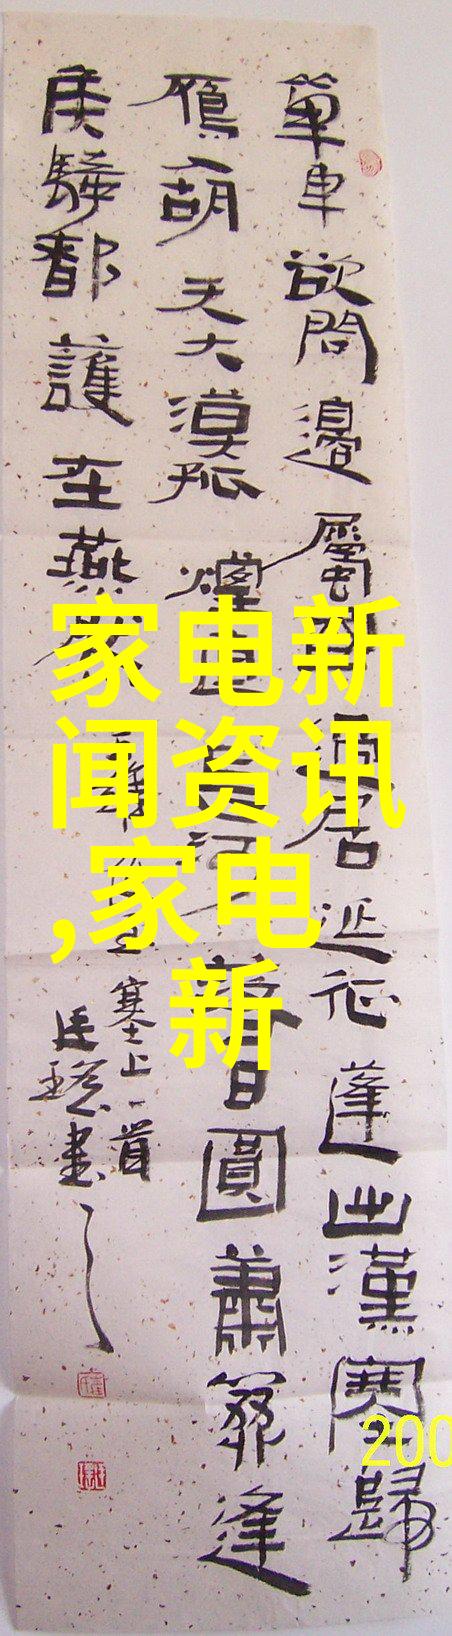 單車欲問邊屬國過居延征蓬出漢塞歸
鴈入胡天大漠孤煙直長河落日圓蕭關逢
侯騎都護在燕然
王維使至塞上一首
書
家电新
闻资讯
,家电
新
200